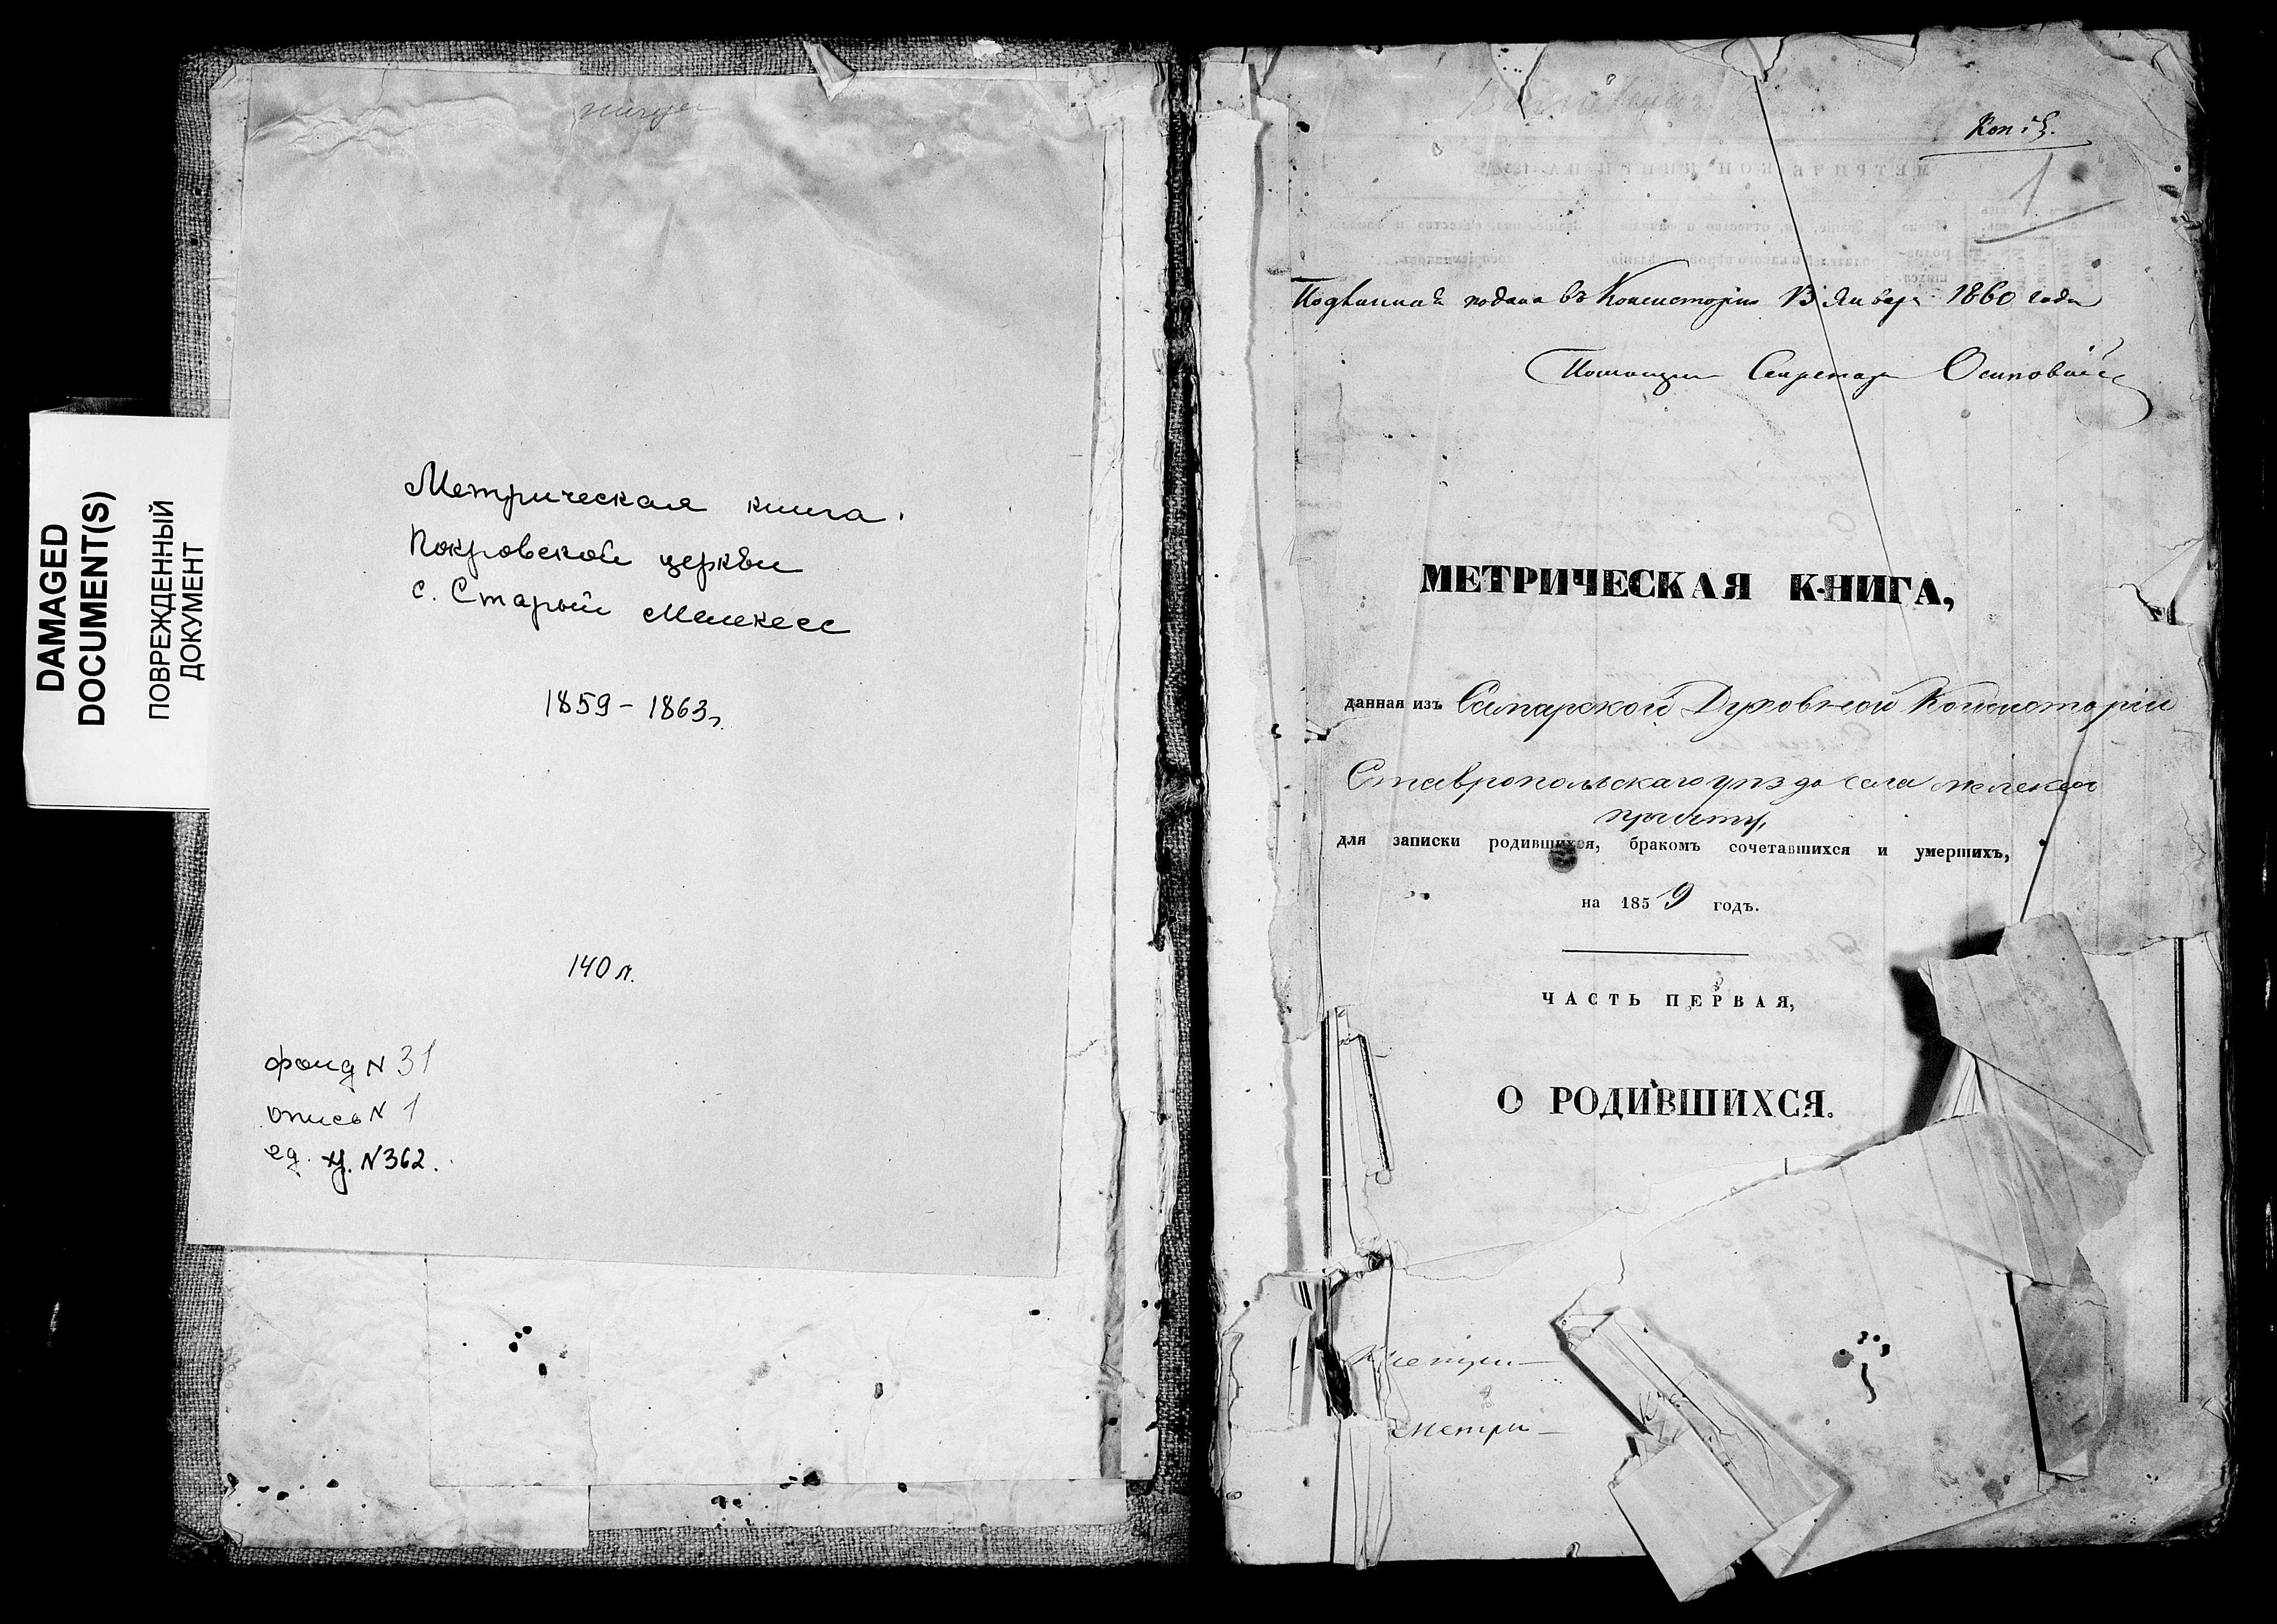 DAMAGED
DOCUMENT(S)
ПОВРЕЖДЕННЫЙ
ДОКУМЕНТ
Метрическая книга
Покровской церкви
с. Старый Мелекесс
1859 - 1863г.
140 л.
фонд N 31
опись N 1
ед. хр. N 362.
Копія.
1
Подлинная подана въ Консисторію 13 Января 1860 года
Помощник Секретаря
МЕТРИЧЕСКАЯ КНИГА,
данная изъ Самарской Духовной Консисторіи
Ставропольскаго уѣзда села Мелекесъ
причту,
для записки родившихся, бракомъ сочетавшихся и умершихъ,
на 1859 годъ.
ЧАСТЬ ПЕРВАЯ,
О РОДИВШИХСЯ.
Метри-
Метри-